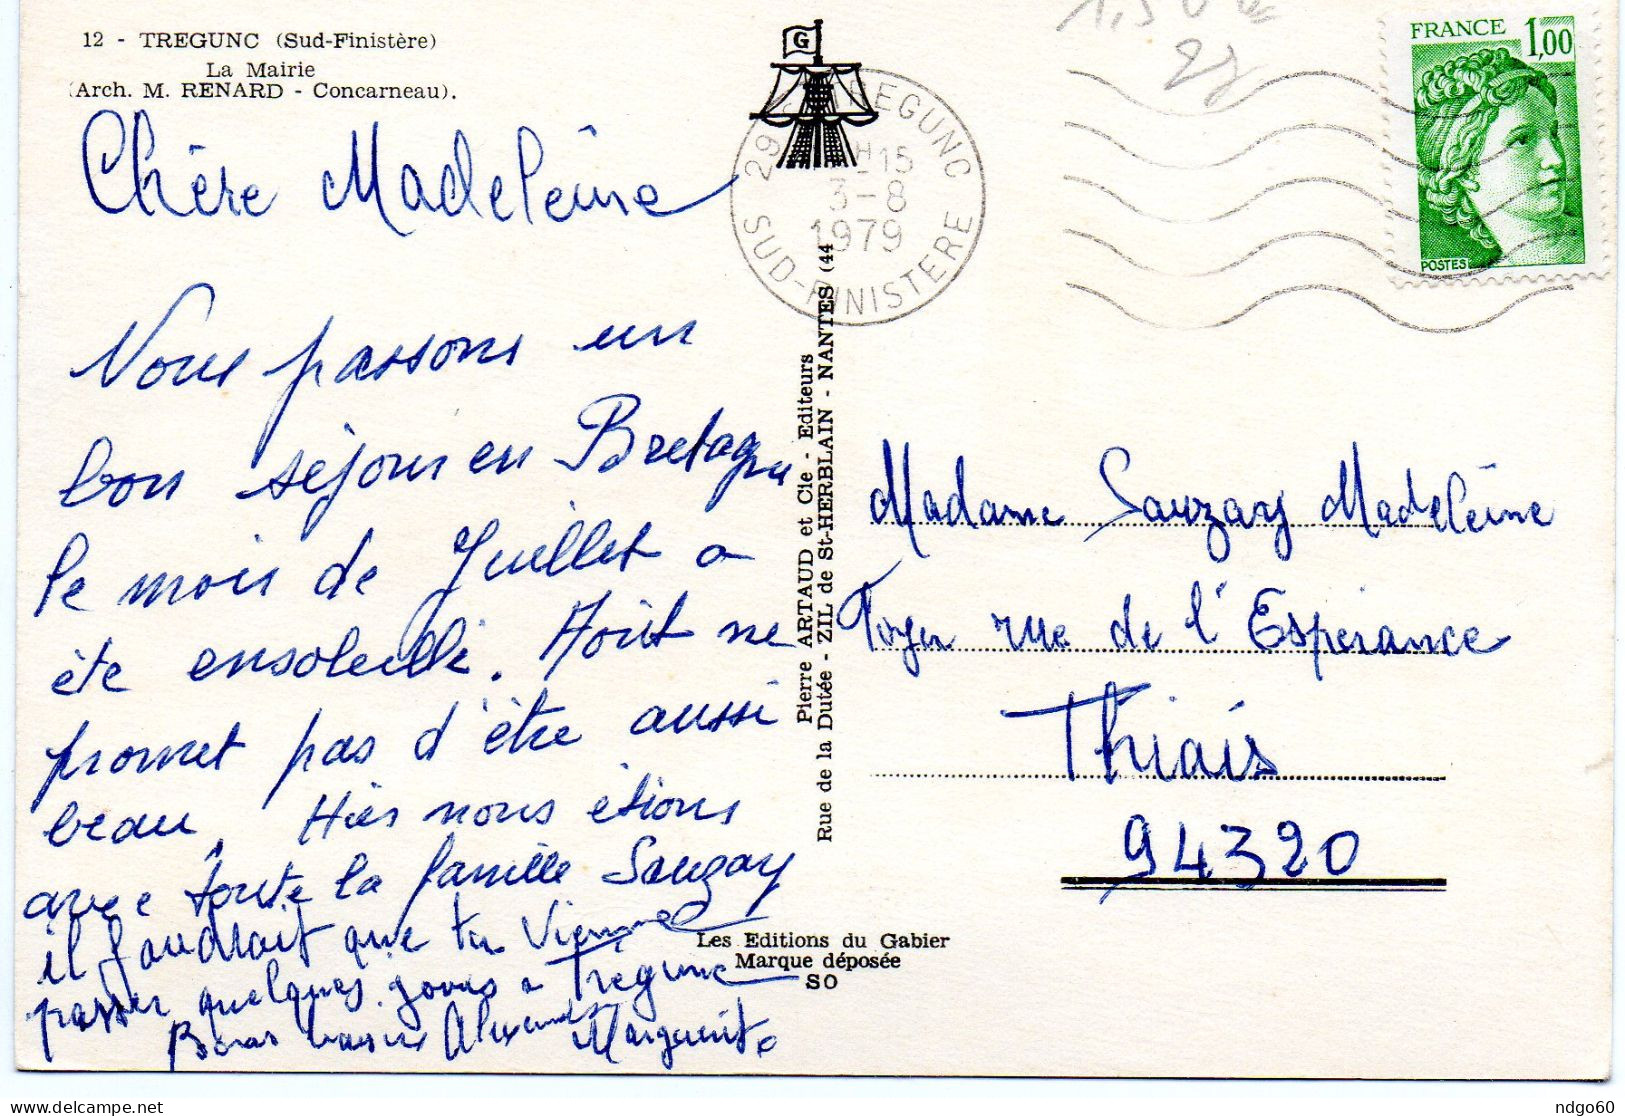 12 - TREGUNC (Sud-Finistère)
La Mairie
(Arch. M. RENARD - Concarneau).
Chère Madeleine
Nous passons un
bon séjour en Bretagne
le mois de Juillet a
été ensoleillé. Août ne
promet pas d'être aussi
beau. Hier nous étions
avec toute la famille Sauzay
il faudrait que tu Vienne
passer quelques jours a Trégunc
Bons baisers Alexandre
Marguerite
G
29 TREGUNC
H-15
3-8
1979
SUD-FINISTERE
Pierre ARTAUD et Cie - Editeurs
Rue de la Dutée - ZIL de St-HERBLAIN - NANTES (44
Les Editions du Gabier
Marque déposée
SO
1,50
FRANCE 1,00
POSTES
Madame Sauzay Madeleine
Foyer rue de l'Espérance
Thiais
94320
ndgo60